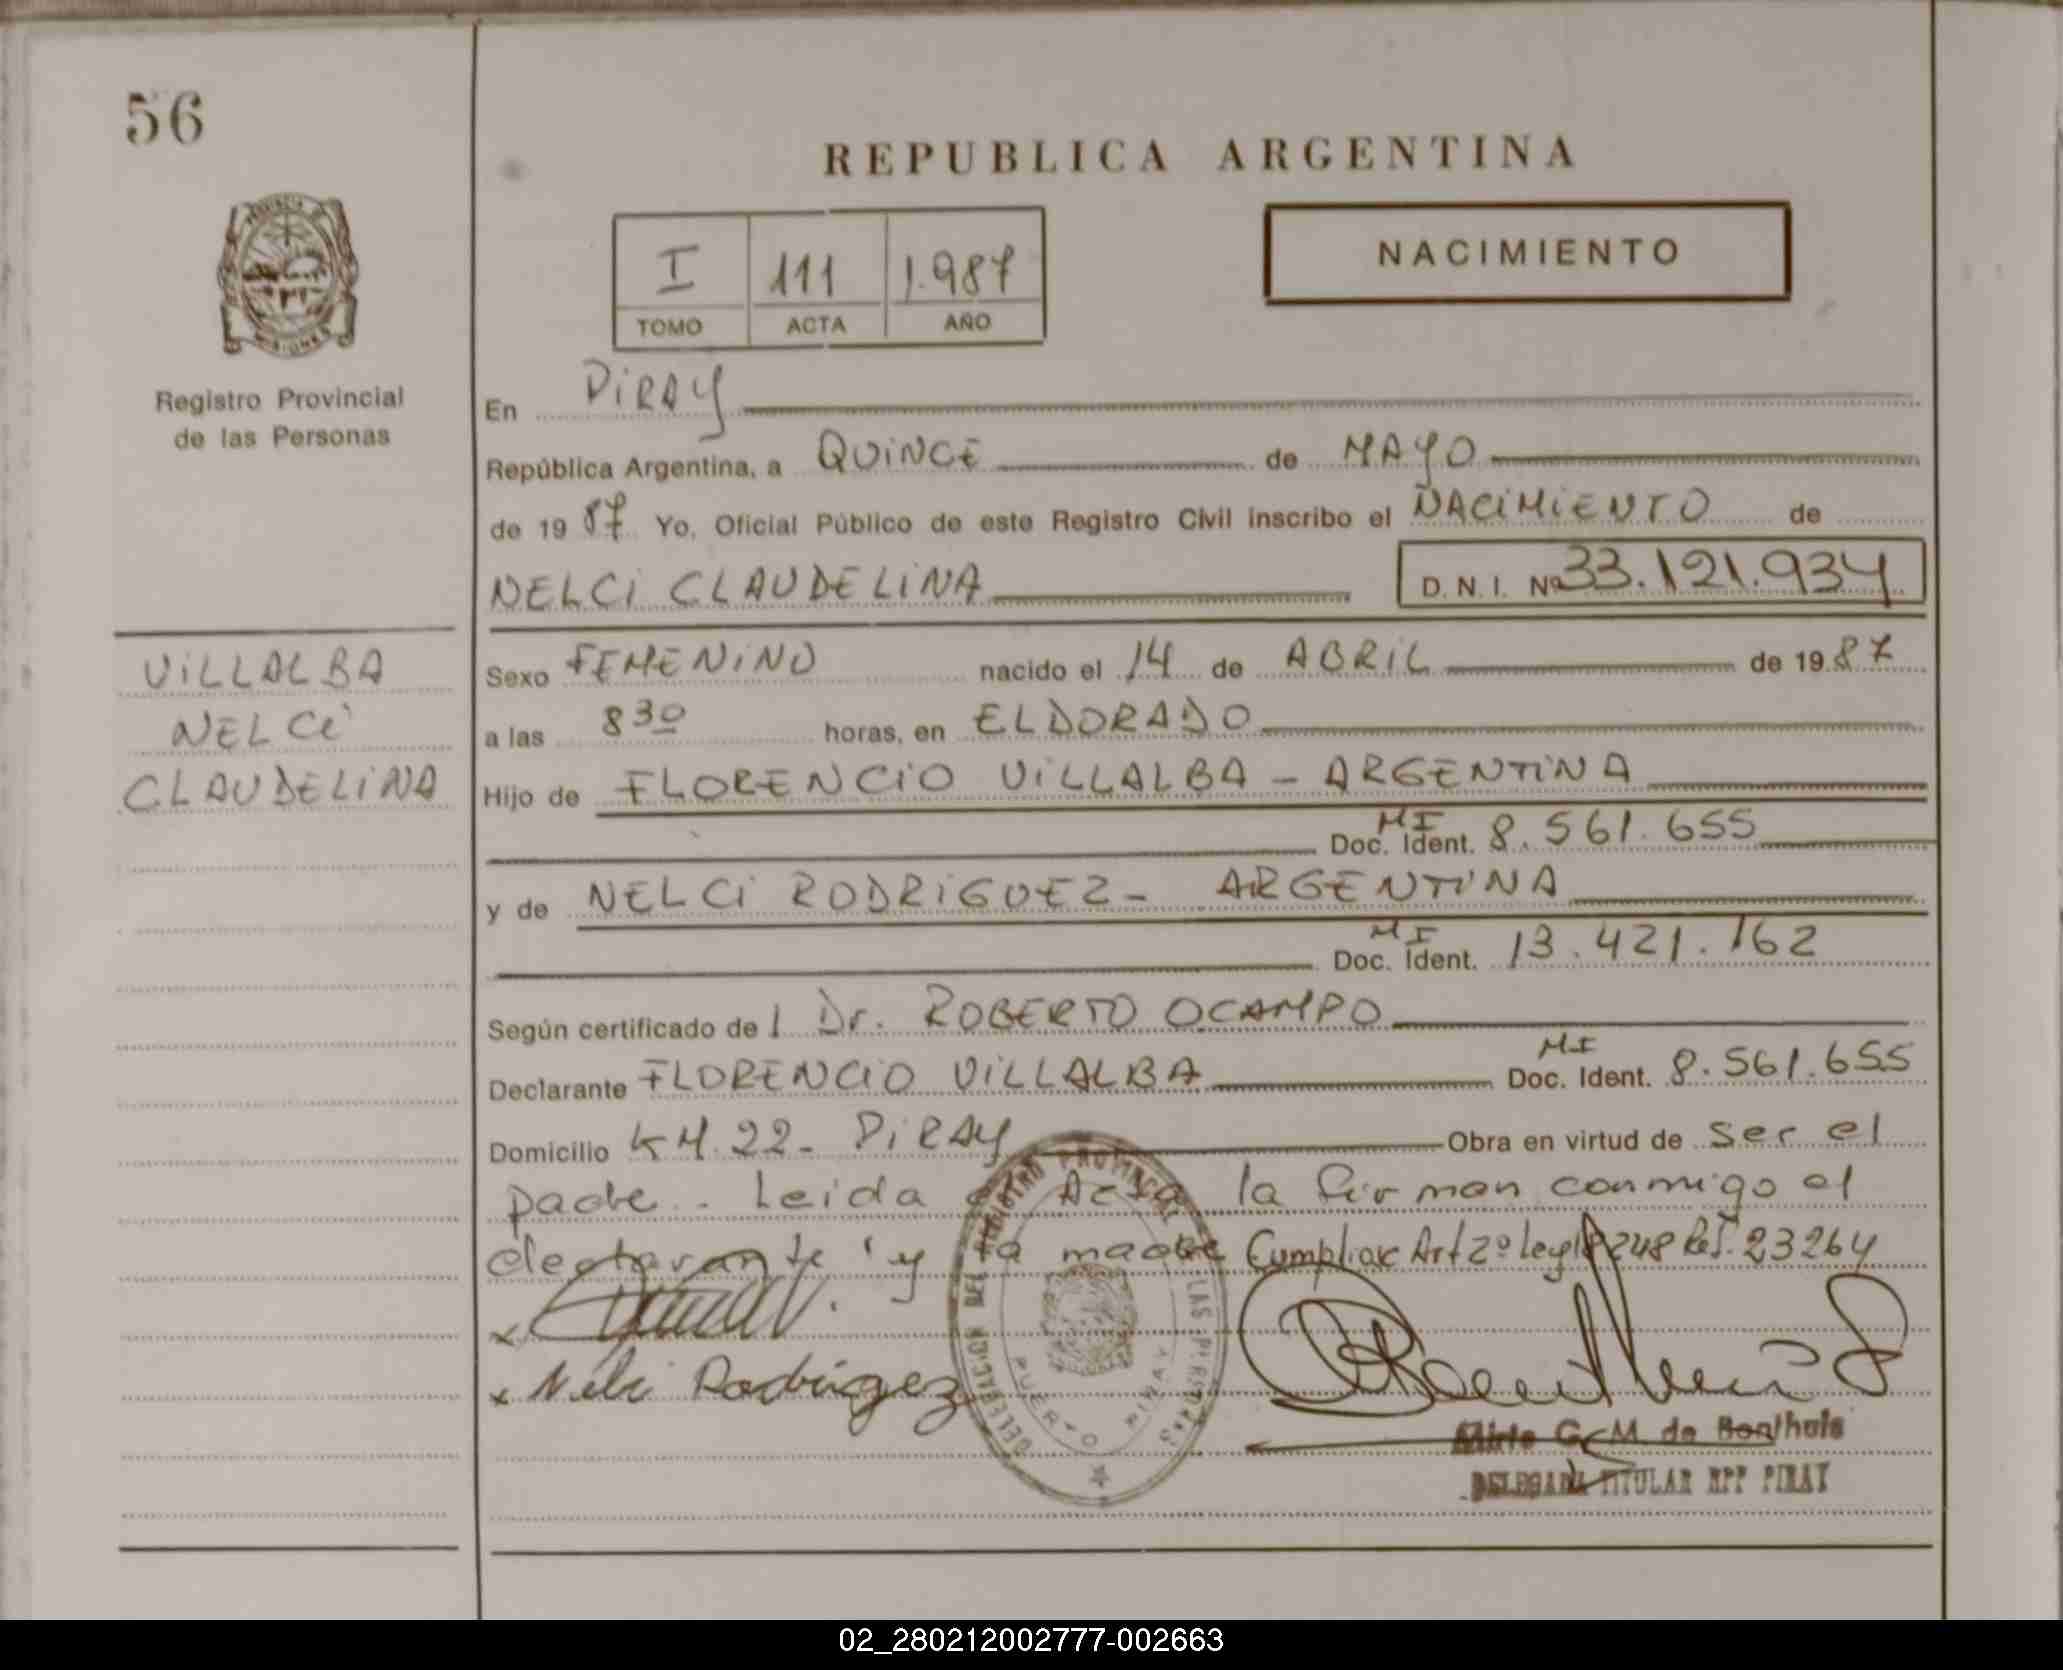 56
REPUBLICA ARGENTINA
PROVINCIA DE
MISIONES
I 111 1.987
TOMO ACTA AÑO
NACIMIENTO
Registro Provincial
de las Personas
En PIRAY
República Argentina, a QUINCE de MAYO
de 19 87 Yo, Oficial Público de este Registro Civil inscribo el NACIMIENTO de
NELCI CLAUDELINA D.N.I. Nº 33.121.934
VILLALBA
NELCI
CLAUDELINA
Sexo FEMENINO nacido el 14 de ABRIL de 19 87
a las 8 30 horas, en ELDORADO
Hijo de FLORENCIO VILLALBA - ARGENTINA
MI
Doc. Ident. 8.561.655
y de NELCI RODRIGUEZ - ARGENTINA
MI
Doc. Ident. 13.421.162
Según certificado de l Dr. ROBERTO OCAMPO
MI
Declarante FLORENCIO VILLALBA Doc. Ident. 8.561.655
Domicilio KM. 22 - PIRAY Obra en virtud de ser el
padre. Leida el Acta la firman conmigo el
declarante y la madre Cumpliose Art 2º Ley 18248 Ref. 23264
x Nelci Rodriguez
DELEGACION DEL REGISTRO PROVINCIAL DE LAS PERSONAS
PUERTO PIRAY
Mirta G. M. de Bonthuis
DELEGADA TITULAR RPP PIRAY
02_280212002777-002663